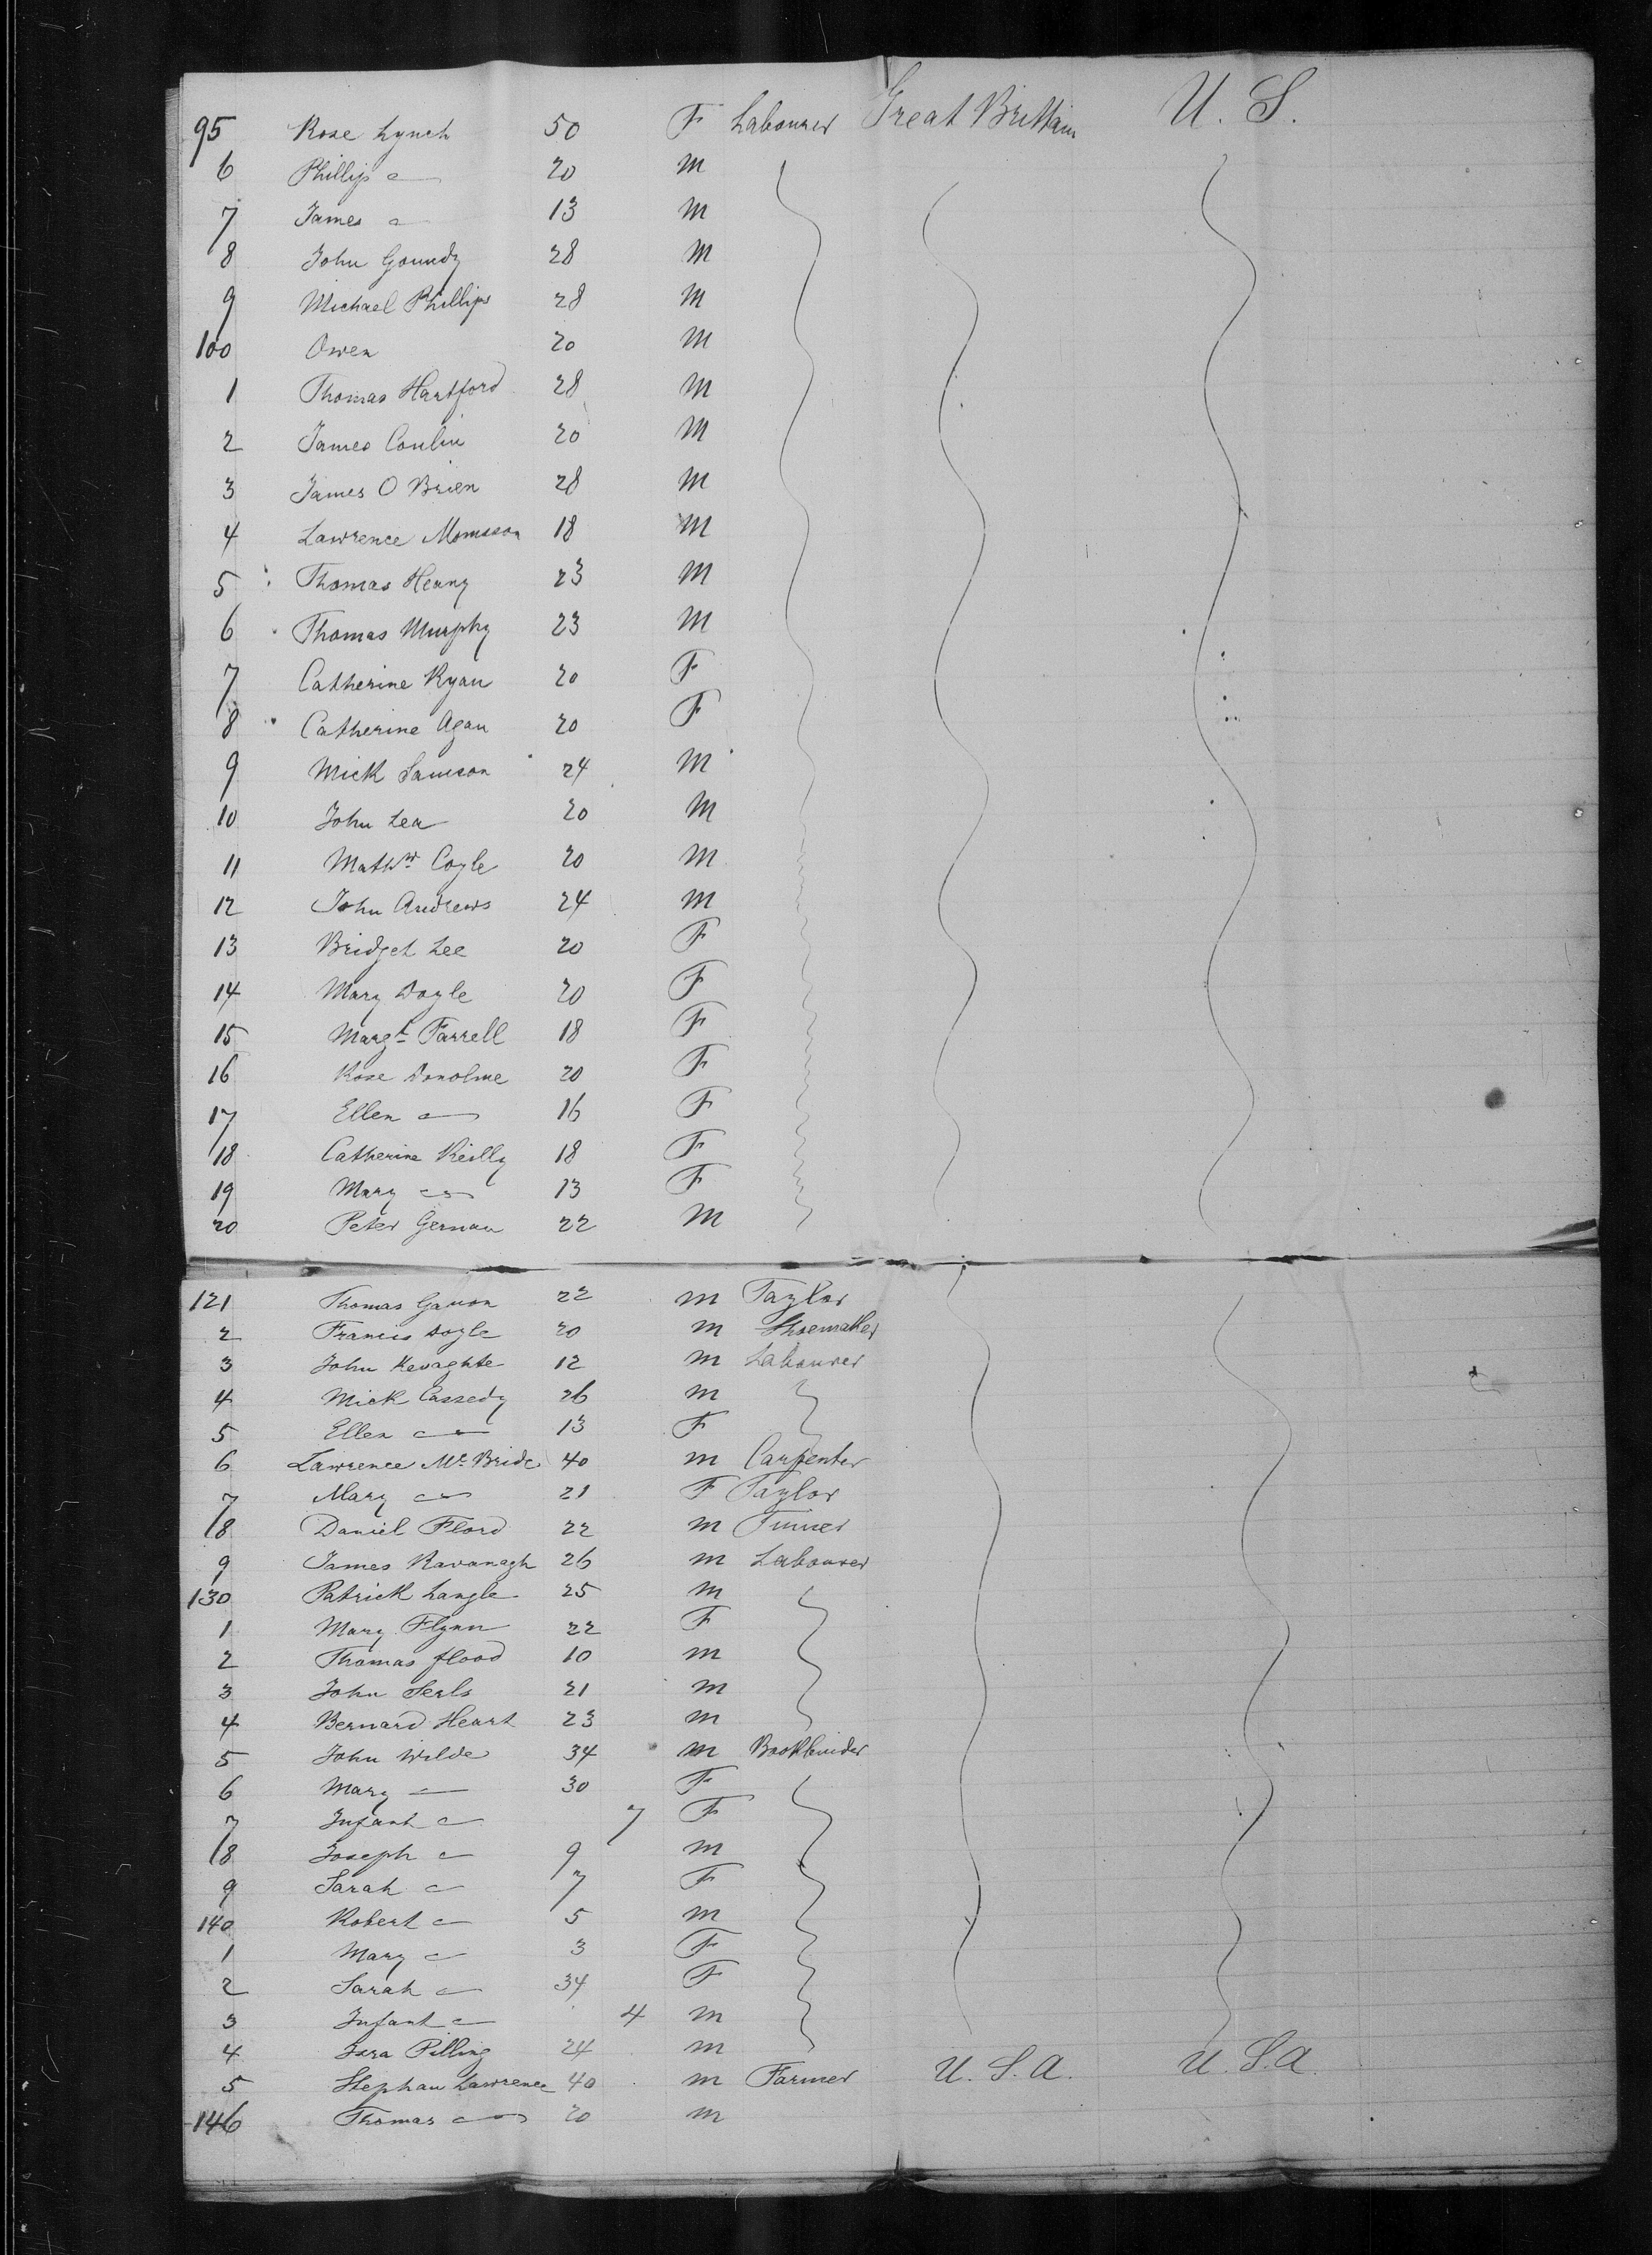 95 Rose Lynch 50 F Labourer Great Brittain U. S.
6 Phillip 20 M
7 James 13 M
8 John Goundy 28 M
9 Michael Phillips 28 M
100 Owen 20 M
1 Thomas Hartford 28 M
2 James Conlin 20 M
3 James O Brien 28 M
4 Lawrence 18 M
5 Thomas Heany 23 M
6 Thomas Murphy 23 M
7 Catherine Ryan 20 F
8 Catherine Agan 20 F
9 Mick Samson 24 M
10 John Lea 20 M
11 Mathw Coyle 20 M
12 John Andrews 24 M
13 Bridget Lee 20 F
14 Mary Doyle 20 F
15 Margt Farrell 18 F
16 Rose Donohue 20 F
17 Ellen 16 F
18 Catherine Reilly 18 F
19 Mary 13 F
20 Peter Gernau 22 M
121 Thomas 22 M Taylor
2 Francis Doyle 20 M Shoemaker
3 John 12 M Labourer
4 Mick Cassedy 26 M
5 Ellen 13 F
6 Lawrence Mc Bride 40 M Carpenter
7 Mary 21 F Taylor
8 Daniel Flord 22 M
9 James Kavanagh 26 M Labourer
130 Patrick Langle 25 M
1 Mary Flynn 22 F
2 Thomas flood 10 M
3 John Serls 21 M
4 Bernard Heart 23 M
5 John Wilde 34 M Bookbinder
6 Mary 30 F
7 Infant 7 F
8 Joseph 9 M
9 Sarah 7 F
140 Robert 5 M
1 Mary 3 F
2 Sarah 34 F
3 Infant 4 M
4 Pilling 24 M
5 Stephan Lawrence 40 M Farmer U. S. A. U. S. A.
146 Thomas 20 M